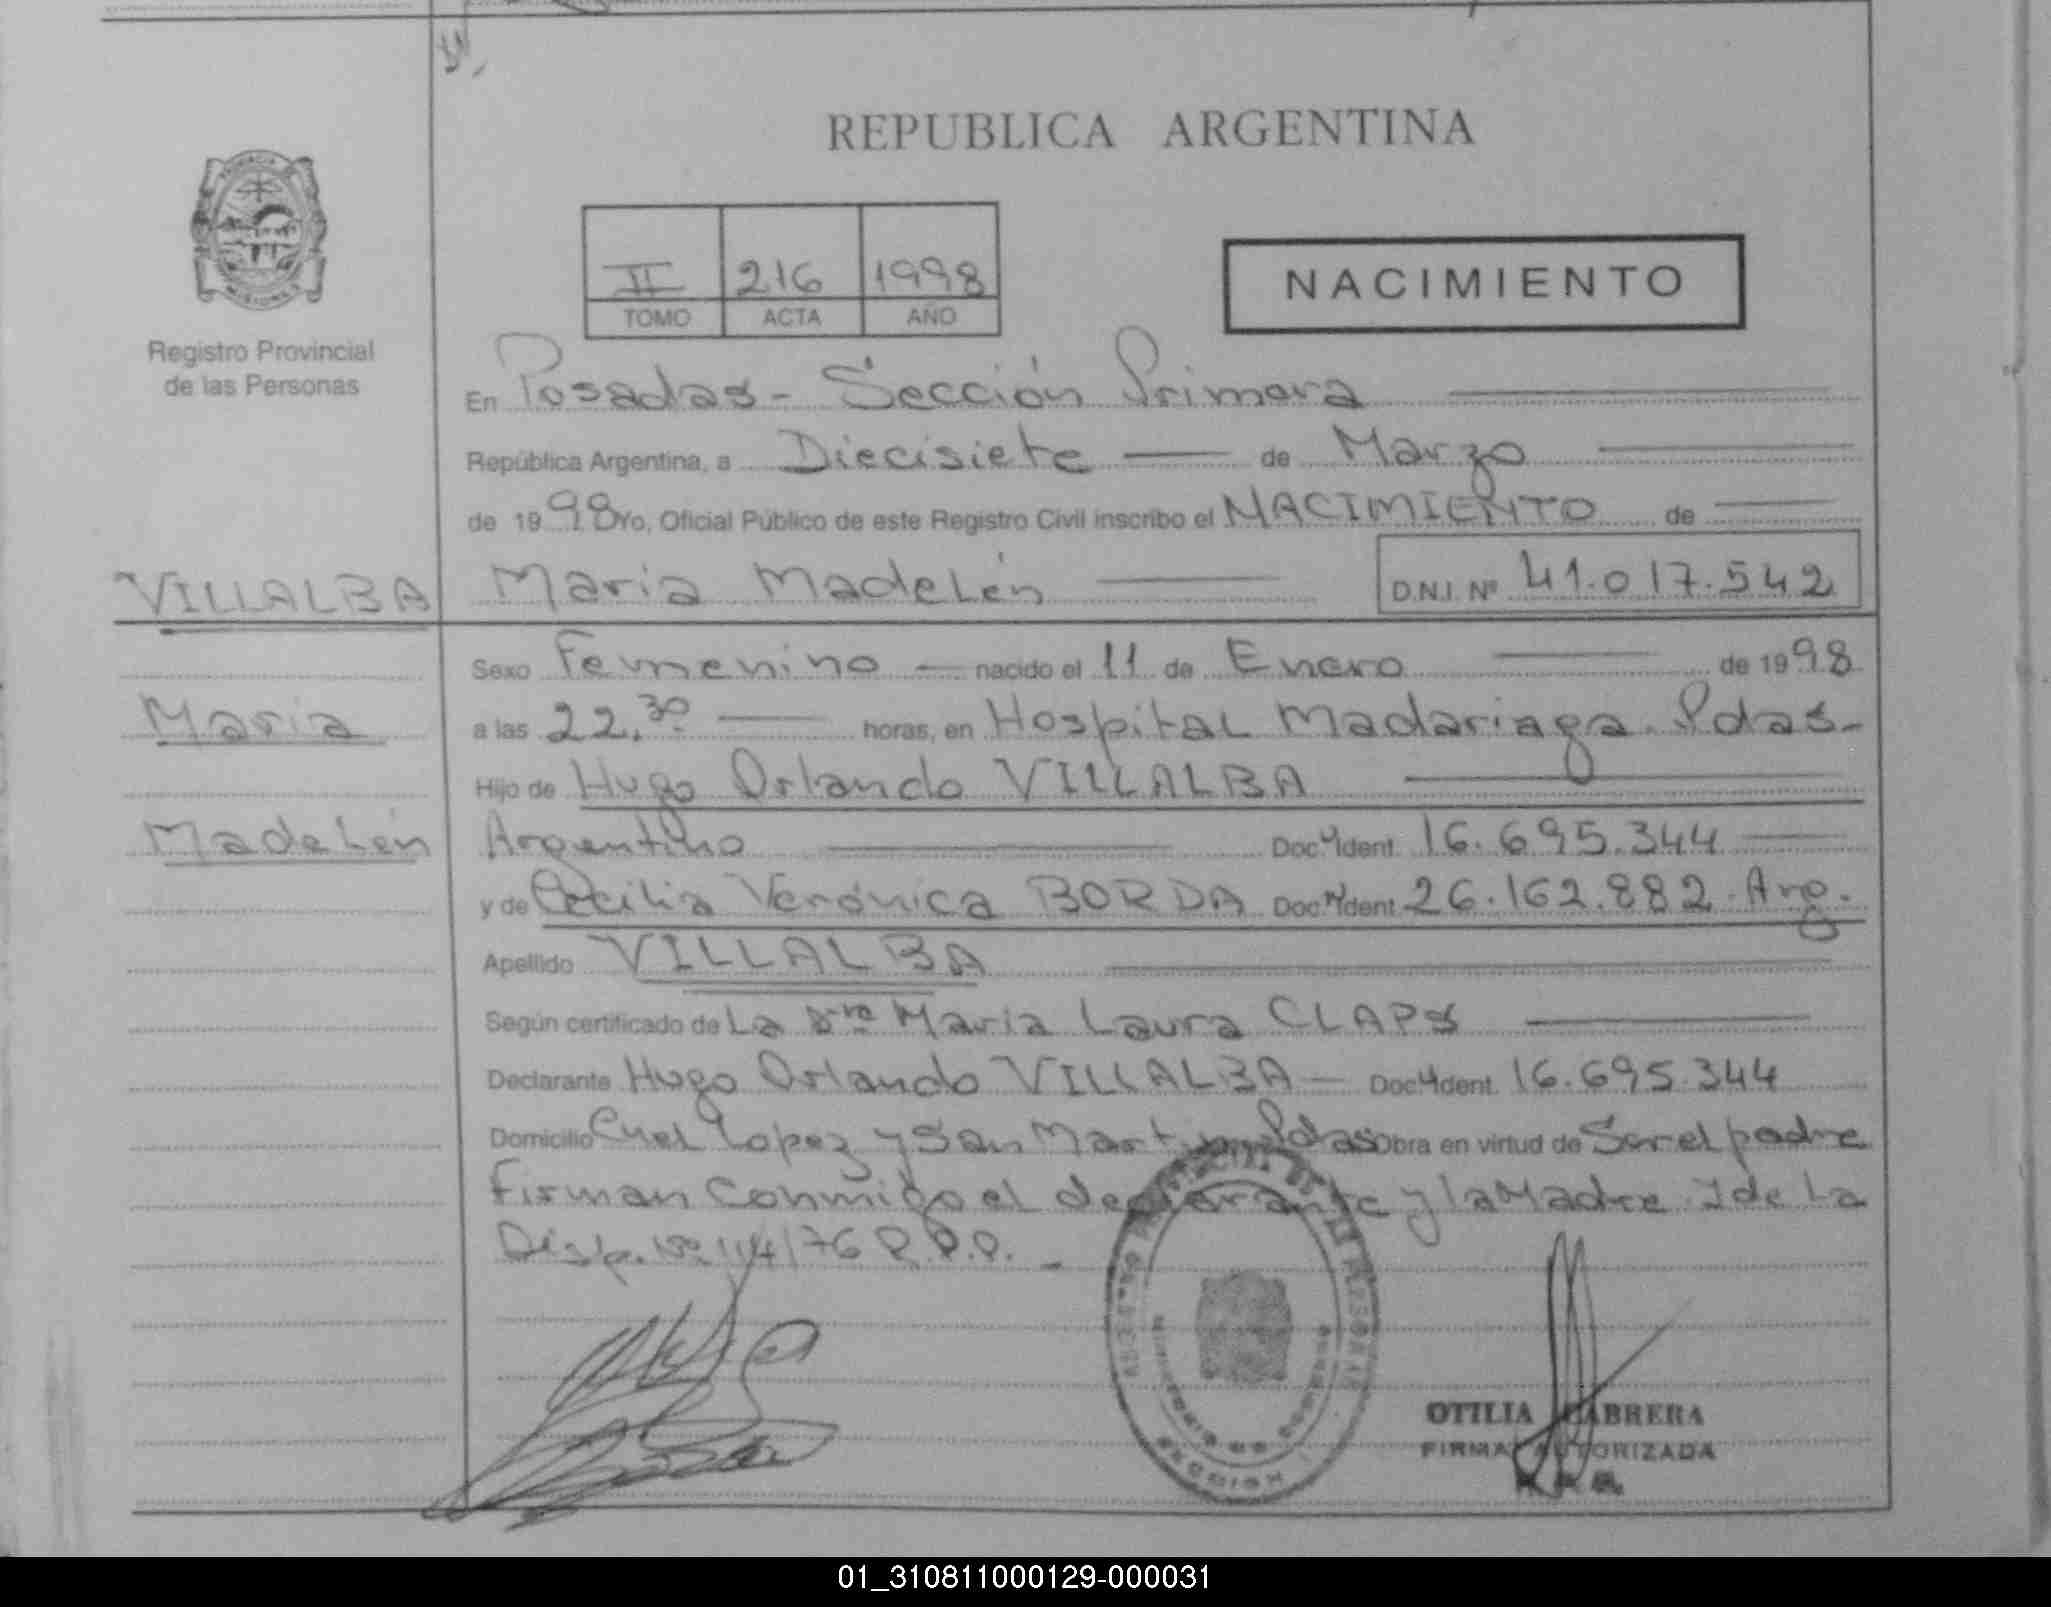 REPUBLICA ARGENTINA
II 216 1998
TOMO ACTA AÑO
NACIMIENTO
Registro Provincial
de las Personas
En Posadas - Sección Primera
República Argentina, a Diecisiete de Marzo
de 1998 Yo, Oficial Público de este Registro Civil inscribo el NACIMIENTO de
VILLALBA María Madelén D.N.I. Nº 41.017.542
Sexo Femenino nacido el 11 de Enero de 1998
María a las 22,30 horas, en Hospital Madariaga. Pdas-
Hijo de Hugo Orlando VILLALBA
Madelén Argentino Doc. Ident. 16.695.344
y de Cecilia Verónica BORDA Doc. Ident. 26.162.882. Arg.
Apellido VILLALBA
Según certificado de La Dra María Laura CLAPS
Declarante Hugo Orlando VILLALBA - Doc. Ident. 16.695.344
Domicilio López y San Martín Pdas Obra en virtud de Ser el padre
Firman Conmigo el declarante y la Madre de la
Disp. Nº 114/76
OTILIA CABRERA
FIRMA AUTORIZADA
01_310811000129-000031